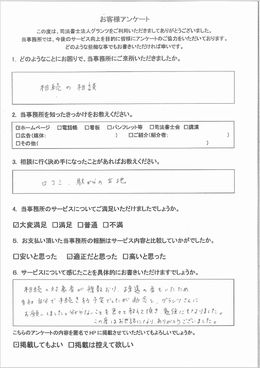 お客様アンケート
この度は、司法書士法人グランツをご利用いただきましてありがとうございました。
当事務所では、今後のサービス向上を目的に皆様にアンケートのご協力をいただいております。
どのような些細な事でもお書きいただければ幸いです。
1. どのようなことにお困りで、当事務所にご来所いただきましたか。
相続の相談
2. 当事務所を知ったきっかけをお教えください。
☑ホームページ □電話帳 □看板 □パンフレット等 □司法書士会 □講演
□広告(媒体: ) □ご紹介(紹介者: )
□その他( )
3. 相談に行く決め手になったことがあればお教えください。
口コミ、駅からの立地
4. 当事務所のサービスについてご満足いただけましたでしょうか。
☑大変満足 □満足 □普通 □不満
5. お支払い頂いた当事務所の報酬はサービス内容と比較していかがでしたか。
□安いと思った ☑適正だと思った □高いと思った
6. サービスについて感じたことを具体的にお書きいただけますでしょうか。
相続の対象者が複数おり、疎遠の者もいたため
自分自身で手続きする予定でしたが グランツさんに
お願いしました。分からないことを教えて頂き勉強にもなりました。
この度はお世話になりありがとうございました。
こちらのアンケートの内容を匿名でHPに掲載させていただいてもよろしいでしょうか。
☑掲載してもよい □掲載は控えて欲しい